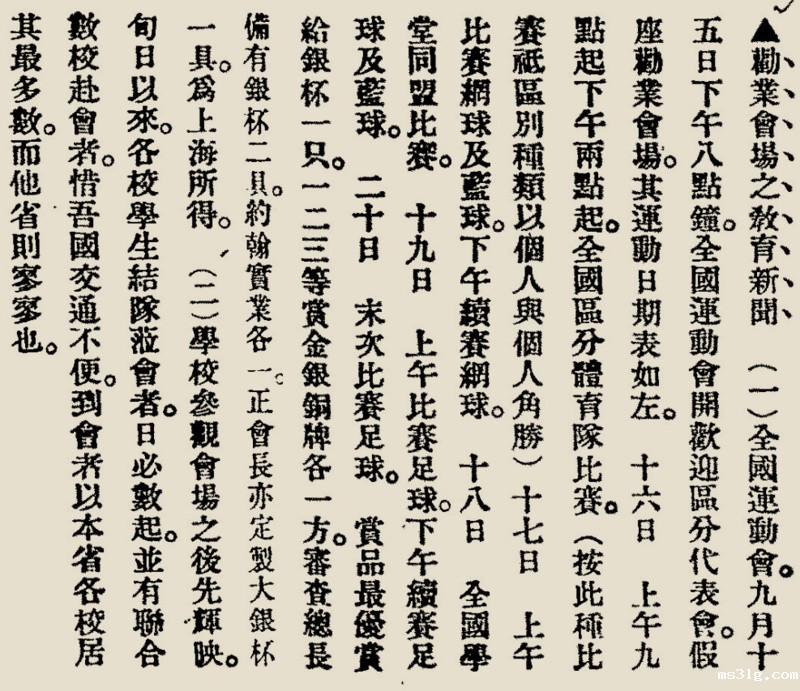 ▲勸業會場之敎育新聞　（一）全國運動會。九月十
五日下午八點鐘。全國運動會開歡迎區分代表會。假
座勸業會場。其運動日期表如左。　十六日　上午九
點起下午兩點起。全國區分體育隊比賽。（按此種比
賽祗區別種類以個人與個人角勝）十七日　上午
比賽網球及藍球。下午續賽網球。　十八日　全國學
堂同盟比賽。　十九日　上午比賽足球。下午續賽足
球及藍球。　二十日　末次比賽足球。　賞品最優賞
給銀杯一只。一二三等賞金銀銅牌各一方。審查總長
備有銀杯二具。約翰實業各一。正會長亦定製大銀杯
一具。爲上海所得。　（二）學校參觀會場之後先輝映。
旬日以來。各校學生結隊蒞會者。日必數起。並有聯合
數校赴會者。惜吾國交通不便。到會者以本省各校居
其最多數。而他省則寥寥也。
ms31g.com